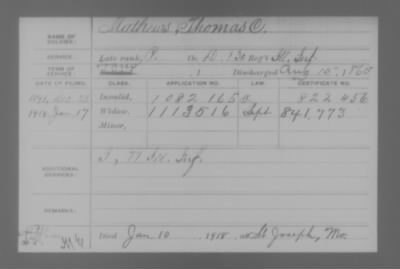 NAME OF SOLDIER: Mathews, Thomas O.
SERVICE: Late rank, P. Co. D, 130 Reg't Ill. Inf.
TERM OF SERVICE: Enlisted , 1 Discharged Aug 15, 1865
DATE OF FILING. CLASS. APPLICATION NO. LAW. CERTIFICATE NO.
1891, Invalid, 1082 165 822 456
1918 Jan 17 Widow, 1113516 Sept 841,773
Minor,
ADDITIONAL SERVICES: I, 77 Ill. Inf.
REMARKS:
Died Jan 10 1918, at St Joseph, Mo.